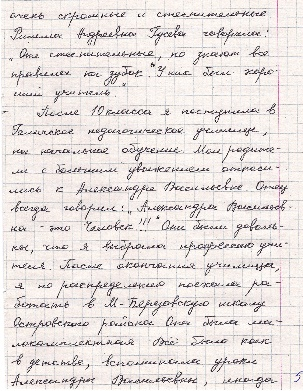 очень скромные и стеснительные
Римма Андреевна Гусева говорила:
"Они стеснительные, но знают все
правила на зубок." У них был хоро-
ший учитель."
После 10 класса я поступила в
Галичское педагогическое училище,
на начальное обучение Мои родите-
ли с большим уважением относи-
лись к Александре Васильевне Отец
всегда говорил: "Александра Васильев-
на - это Человек!!!" Они были доволь-
ны, что я выбрала профессию учи-
теля. После окончания училища,
я по распределению поехала ра-
ботать в М-Березовскую школу
Островского района Она была ма-
локомплектная Всё было как
в детстве, вспоминала уроки
Александры Васильевны иногда
5